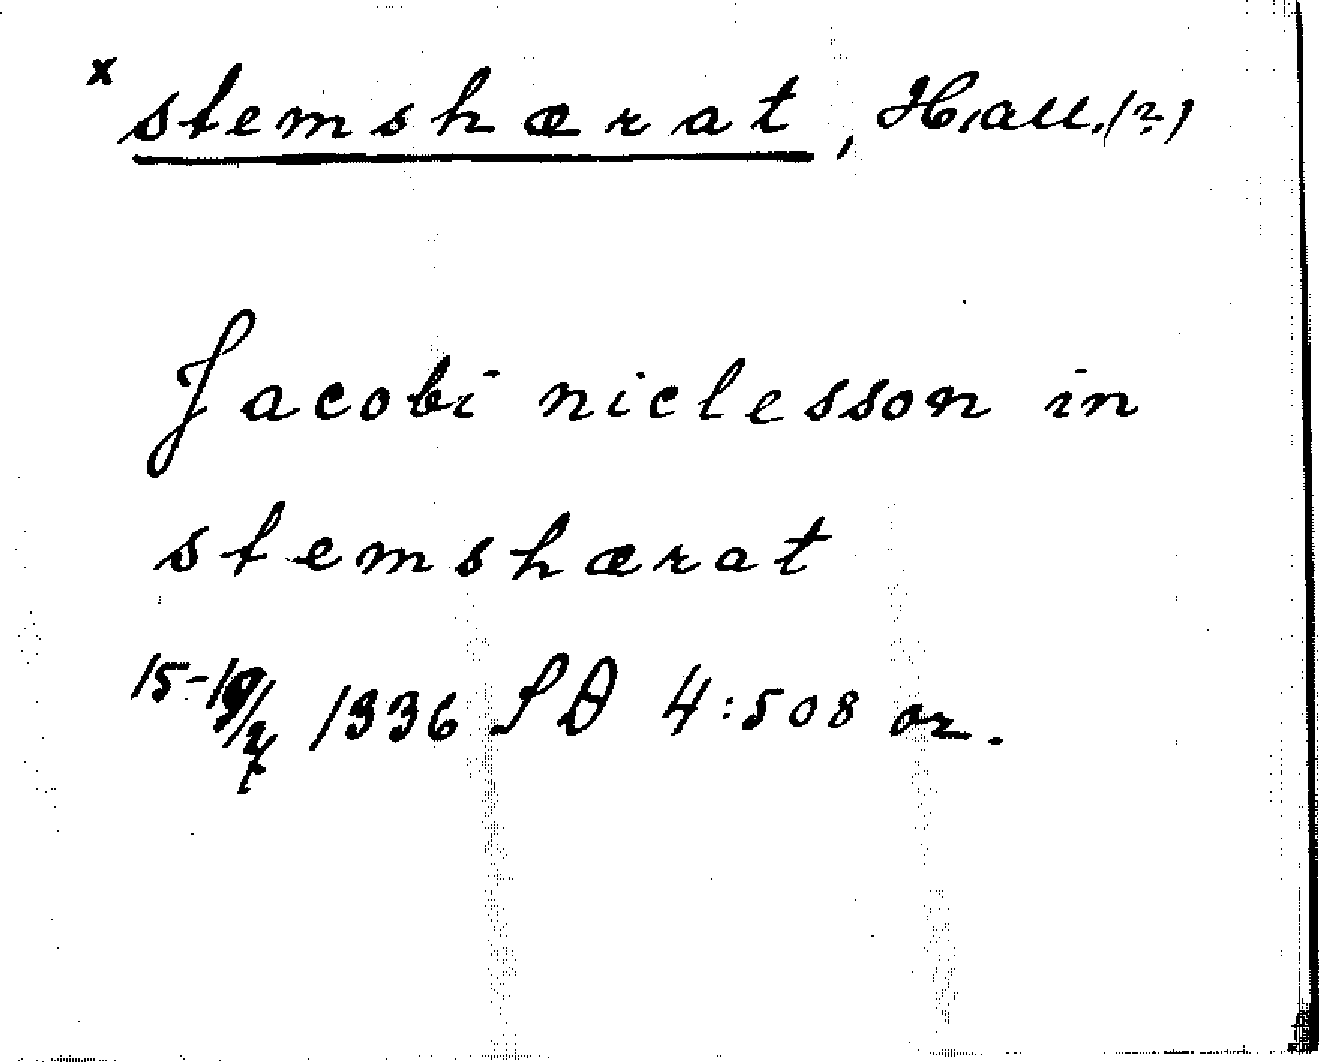 x stemshærat, Hall.(?)
Jacobi niclesson in
stemshærat
15-19/7 1336 SD 4:508 or.